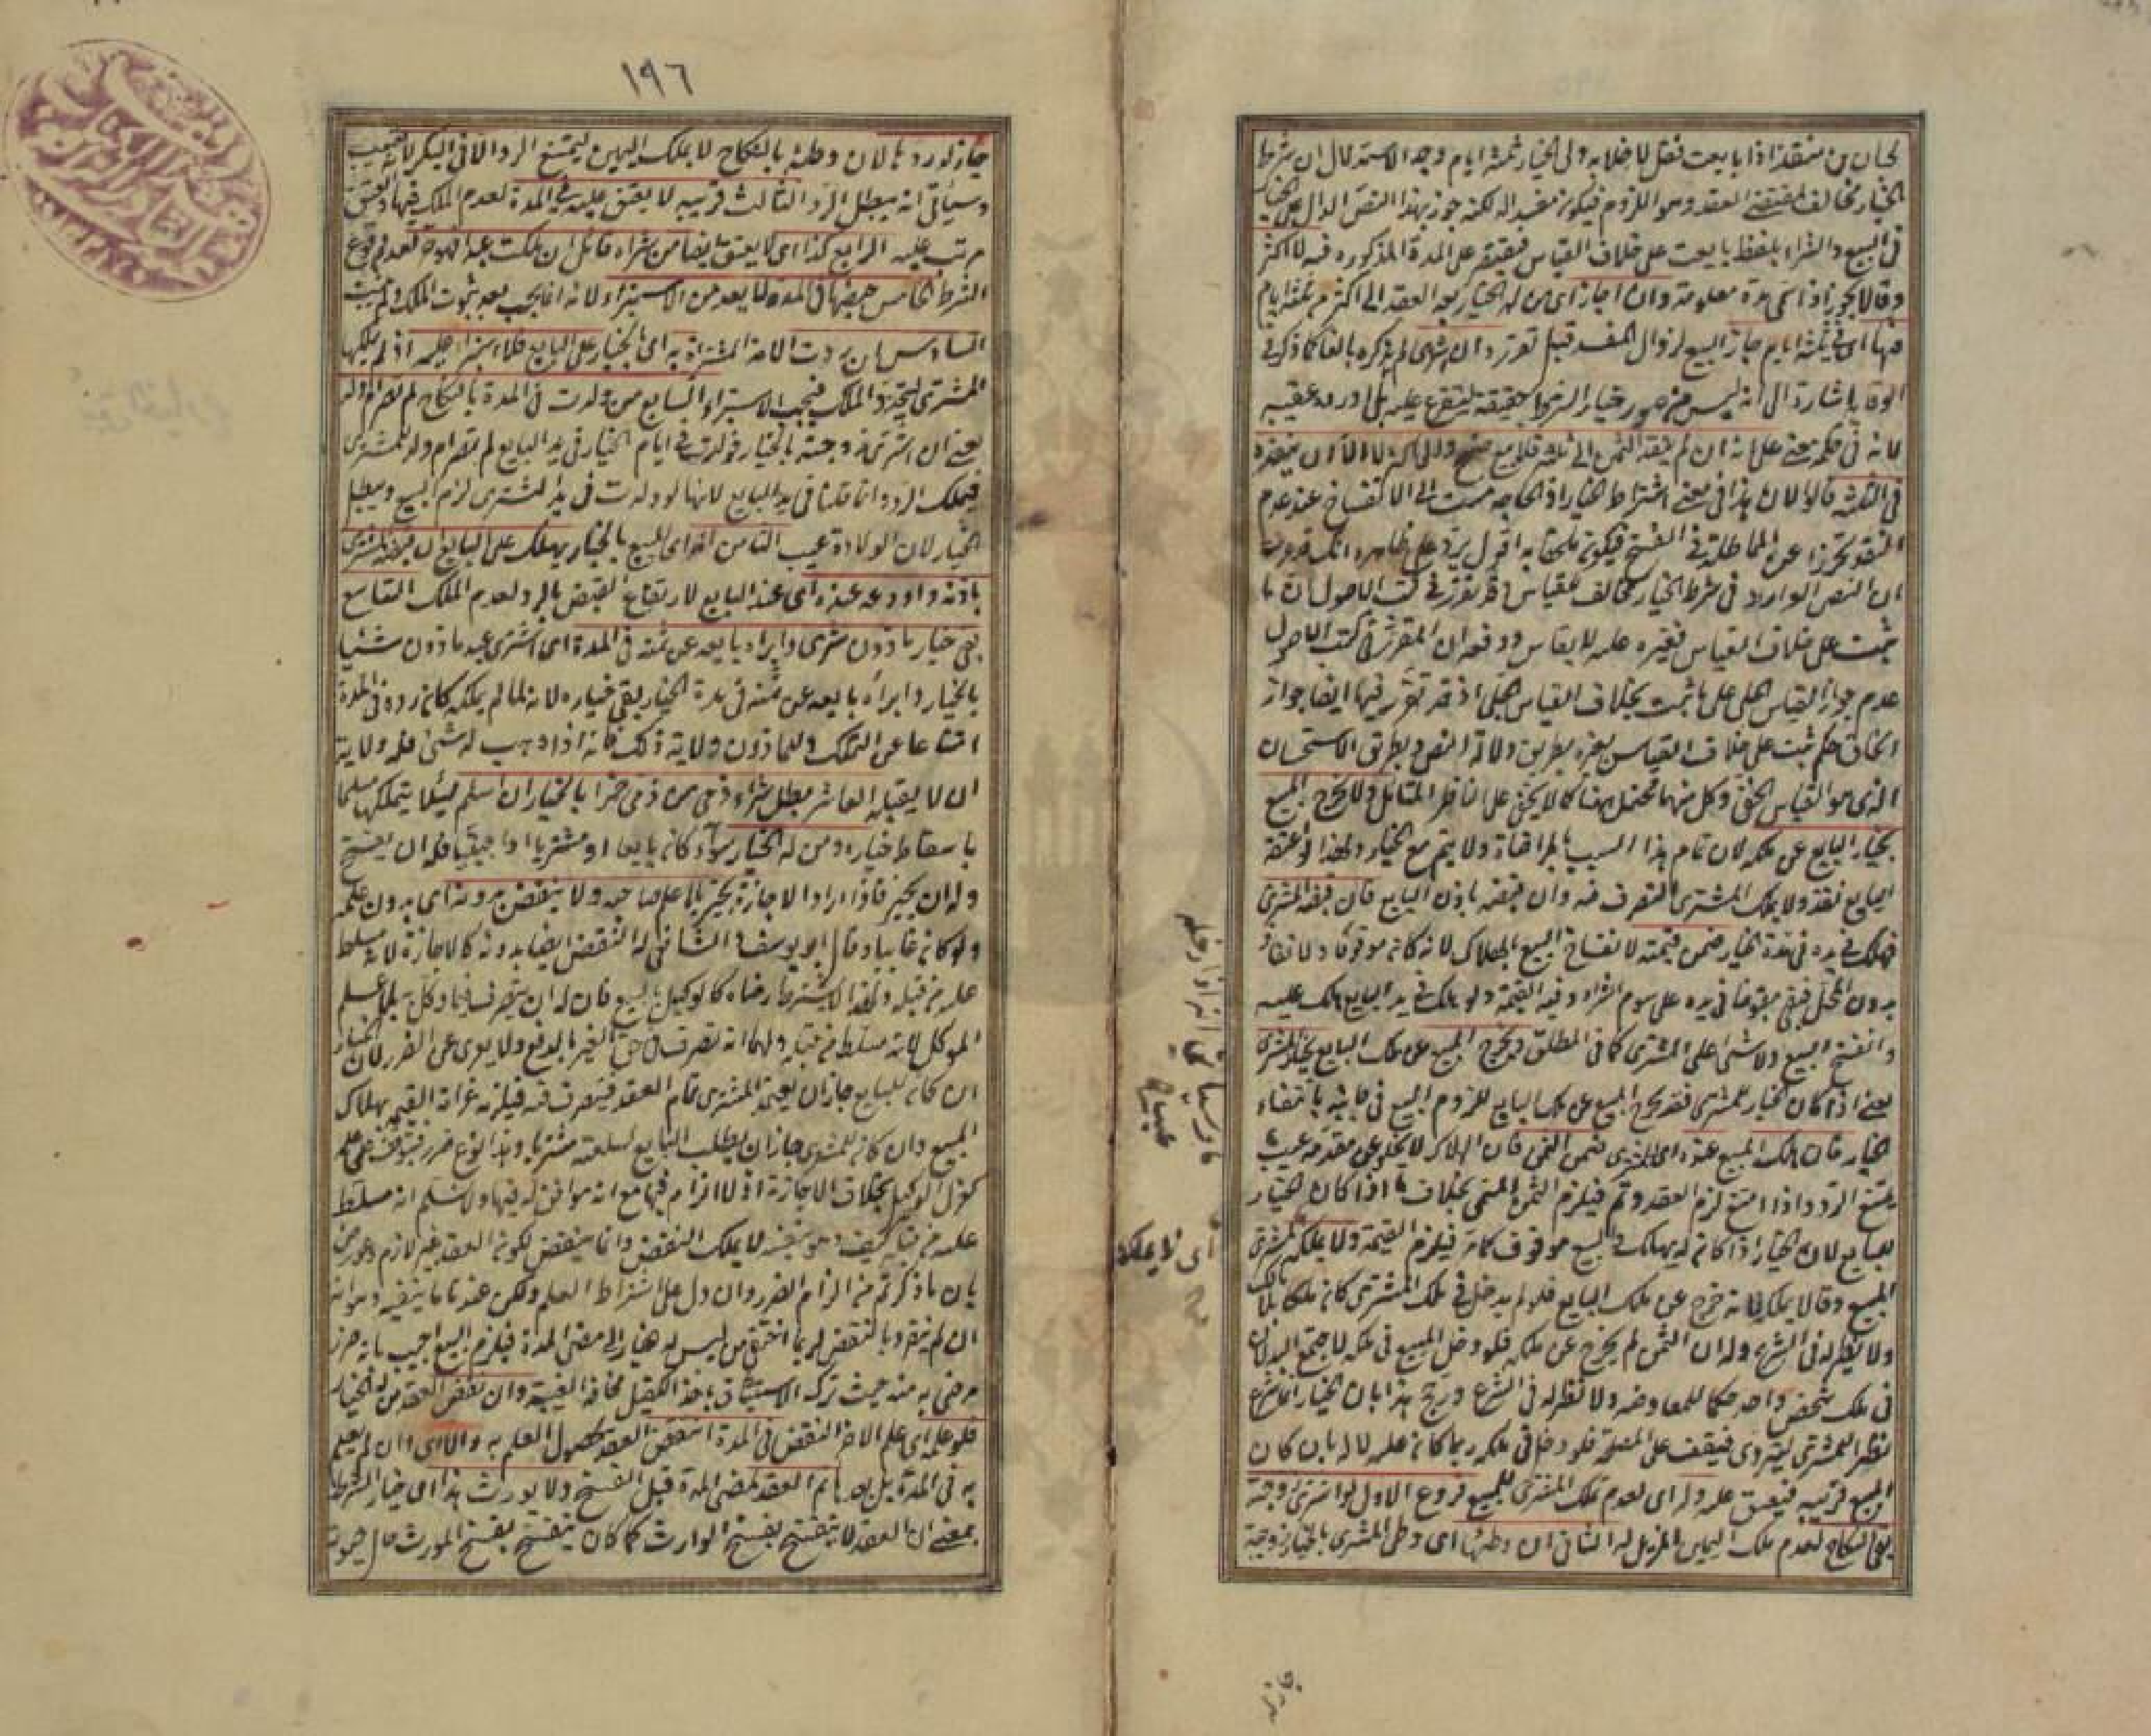 لحبان بن منقذ اذا بايعت فقل لا خلابة ولي الخيار ثلثة ايام وجه الاستدلال ان شرط
الخيار مخالف لمقتضى العقد وهو اللزوم فيكون مفسدا له لكنه جوز بهذا النص الدال على الخيار
في البيع والشراء بلفظ بايعت على خلاف القياس فيقتصر على المدة المذكورة فيه لا اكثر
وقالا يجوز اذا سمى مدة معلومة وان اجاز اي من له الخيار بعد العقد الى اكثر من ثلثة ايام
فيها اي في ثلثة ايام جاز البيع لزوال المفسد قبل تقرره وان شرى لم يذكره بالفاء كما ذكر في
الوقاية اشارة الى انه ليس من صور خيار الشرط حقيقة ليتفرع عليه بل اورده عقيبه
لانه في حكمه معنى على انه ان لم ينقد الثمن الى ثلثة فلا بيع صح والى اكثر لا الا ان ينقد
في الثلثة قالوا لان هذا في معنى اشتراط الخيار اذ الحاجة مست الى الانفساخ عند عدم
النقد تحرزا عن المماطلة في الفسخ فيكون ملحقا به اقول يرد على ظاهره انك قد عرفت
ان النص الوارد في شرط الخيار مخالف للقياس وقد تقرر في كتب الاصول ان ما
ثبت على خلاف القياس فغيره عليه لا يقاس ودفعه ان المقرر في كتب الاصول
عدم جواز القياس الجلي على ما ثبت بخلاف القياس الجلي اذ قد تقرر فيها ايضا جواز
الحاق حكم ثبت على خلاف القياس بغيره بطريق دلالة النص وبطريق الاستحسان
الذي هو القياس الخفي وكل منهما محتمل ههنا كما لا يخفى على الناظر المتامل ولا يخرج المبيع
بخيار البايع عن ملكه لان تمام هذا السبب بالمراضاة ولا يتم مع الخيار ولهذا لو اعتقه
البايع نفذ ولا يملك المشتري التصرف فيه وان قبضه باذن البايع فان قبضه المشتري
فهلك في يده في مدة الخيار ضمن قيمته لانفساخ البيع بالهلاك لانه كان موقوفا ولا نفاذ
بدون المحل فبقي مقبوضا في يده على سوم الشراء وفيه القيمة ولو هلك في يد البايع هلك عليه
وانفسخ البيع ولا شيء على المشتري كما في المطلق ويخرج المبيع عن ملك البايع بخيار المشتري
يعني اذا كان الخيار للمشتري فقد يخرج المبيع عن ملك البايع للزوم البيع في جانبه بانتفاء
الخيار فان هلك المبيع عنده اي المشتري ضمن الثمن فان الهلاك لا يخلو عن مقدمة عيب
يمتنع الرد واذا امتنع لزم العقد وتم فيلزم الثمن المسمى بخلاف ما اذا كان الخيار
للبايع لان الخيار اذا كان له يهلك والبيع موقوف كما مر فيلزم القيمة ولا يملكه المشتري
المبيع وقالا يملكه لانه خرج عن ملك البايع فلو لم يدخل في ملك المشتري كان ملكا بلا مالك
ولا نظير له في الشرع وله ان الثمن لم يخرج عن ملكه فلو دخل المبيع في ملكه لاجتمع البدلان
في ملك شخص واحد حكما للمعاوضة ولا نظير له في الشرع ورجح هذا بان الخيار انما شرع
نظرا للمشتري ليتروى فيقف على المصلحة فلو دخل في ملكه ربما كان عليه لا له بان كان
المبيع قريبه فيعتق عليه وله اي لعدم ملك المشتري للمبيع فروع الاول لو اشترى زوجته
بقي النكاح لعدم ملك اليمين المزيل له الثاني ان وطئها اي وطئ المشتري بالخيار زوجته
اي لا يملكه
١٩٦
جاز له ردها لان وطئه بالنكاح لا بملك اليمين ليمتنع الرد الا في البكر لانه تعييب
وسيأتي انه يبطل الرد الثالث قريبه لا يعتق عليه في المدة لعدم الملك فيها والعتق
مرتب عليه الرابع كذا اي لا يعتق ايضا من شراه قائل ان ملكت عبدا فهو حر لعدم وقوع
الشرط الخامس حيضها في المدة لا يعد من الاستبراء لانه انما يجب بعد ثبوت الملك ولم يثبت
السادس ان ردت الامة المشتراة به اي بالخيار على البايع فلا استبراء عليه اذ لم يملكها
المشتري ليتجدد الملك فيجب الاستبراء السابع من ولدت في المدة بالنكاح لم تصر ام ولد
يعني ان اشترى زوجته بالخيار فولدت في ايام الخيار في يد البايع لم تصر ام ولد للمشتري
فيملك الرد وانما قلنا في يد البايع لانها لو ولدت في يد المشتري لزم البيع ويبطل
الخيار لان الولادة عيب الثامن اخر اي المبيع بالخيار يهلك على البايع ان قبضه المشتري
باذنه واودعه عنده اي عند البايع لارتفاع القبض بالرد لعدم الملك التاسع
بقي خيار ماذون شرى وابراه بايعه عن ثمنه في المدة اي اشترى عبد ماذون شيئا
بالخيار وابراه بايعه عن ثمنه في مدة الخيار بقي خياره لانه لما لم يملكه كان رده في المدة
امتناعا عن التملك وللماذون ولاية ذلك فانه اذا وهب له شيء فله ولاية
ان لا يقبله العاشر بطل شراء ذمي من ذمي خمرا بالخيار ان اسلم لئلا يتملكها مسلما
باسقاط خياره ومن له الخيار سواء كان بايعا او مشتريا او اجنبيا فله ان يفسخ
وله ان يجيز فاذا اراد الاجازة يجيز بلا علم صاحبه ولا ينقض بدونه اي بدون علمه
ولو كان غايبا وقال ابو يوسف والشافعي له النقض ايضا بدونه كالاجازة لانه مسلط
عليه من قبله ولهذا لا يشترط رضاه كالوكيل بالبيع فان له ان يتصرف فيما وكل بلا علم
الموكل لانه مسلط من قبله ولهما انه تصرف في حق الغير بالرفع ولا يعرى عن الضرر لان الخيار
ان كان للبايع جاز ان يعتمد المشتري تمام العقد فيتصرف فيه فيلزمه غرامة القيمة بهلاك
المبيع وان كان للمشتري جاز ان يطلب البايع لسلعته مشتريا وهذا نوع ضرر فيتوقف على علمه
كعزل الوكيل بخلاف الاجازة اذ لا الزام فيها مع انه موافق له فيها ولا نسلم انه مسلط
عليه من قبله كيف وهو بنفسه لا يملك النقض وانما ينقض لكون العقد غير لازم وعورض
بان ما ذكرتم من الزام الضرر وان دل على اشتراط العلم ولكن عندنا ما ينفيه وهو انه
ان لم ينفرد بالنقض لربما اختفى من ليس له خيار الى مضي المدة فيلزم البيع اجيب بانه ضرر
مرضي به منه حيث ترك الاستيثاق باخذ الكفيل مخافة الغيبة وان نقض العقد من له الخيار
فلو علمه اي علم الاخر النقض في المدة انتقض العقد لحصول العلم به والا اي وان لم يعلم
به في المدة بل بعدها تم العقد لمضي المدة قبل الفسخ ولا يورث هذا اي خيار الشرط
بمعنى ان العقد لا ينفسخ بفسخ الوارث كما كان ينفسخ بفسخ المورث حال حيوته